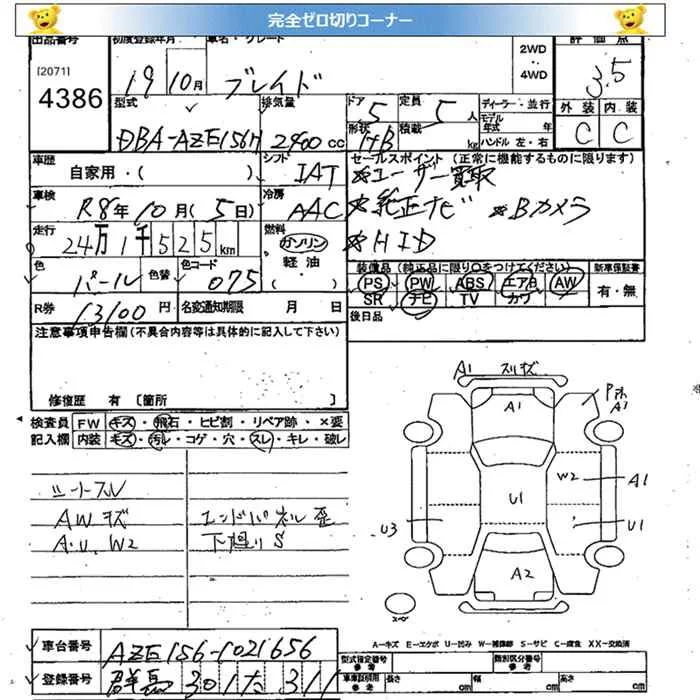 完全ゼロ切りコーナー
出品番号 初度登録年月 車名・グレード 2WD・・4WD 評価点
[2071]
4386
19 10月 ブレイド 3.5
型式 排気量 ドア 5 定員 5 人 ディーラー・並行 外装 内装
DBA-AZE156H 2400 cc 形状 HB 積載 kg モデル年式 年 ハンドル 左・右 C C
車歴 自家用・( ) シフト IAT セールスポイント (正常に機能するものに限ります)
※ユーザー買取
車検 R8年 10月 (5日) 冷房 AAC ※純正ナビ ※Bカメラ
走行 24万1千525km 燃料 ガソリン・軽油・ ※HID
色 パール 色替 色コード 075 装備品 (純正品に限り○をつけてください) 新車保証書
PS PW ABS エアB AW 有・無
R券 13100円 名変通知期限 月 日 SR ナビ TV カワ
後日品
注意事項申告欄(不具合内容等は具体的に記入して下さい)
修復歴 有 [箇所 ]
検査員 FW キズ・飛石・ヒビ割・リペア跡・×要
記入欄 内装 キズ・汚レ・コゲ・穴・スレ・キレ・破レ
シートスレ
AWキズ エンドパネル歪
A.U.W2 下廻りS
A1 スリキズ
A1
A1
W2 A1
U1
U3 U1
A2
スペア
車台番号 AZE156-1021656
登録番号 群馬 301 た 311
A-キズ E-エクボ U-凹み W-補修跡 S-サビ C-腐食 XX-交換済
型式指定番号 参考 類別区分番号 参考
車庫証明用 参考 長さ cm 幅 cm 高さ cm